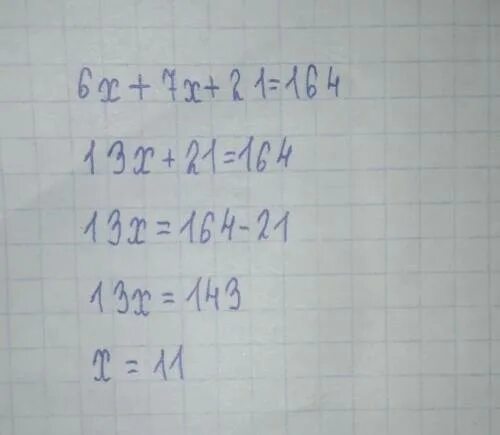 6x + 7x + 21 = 164
13x + 21 = 164
13x = 164 - 21
13x = 143
x = 11